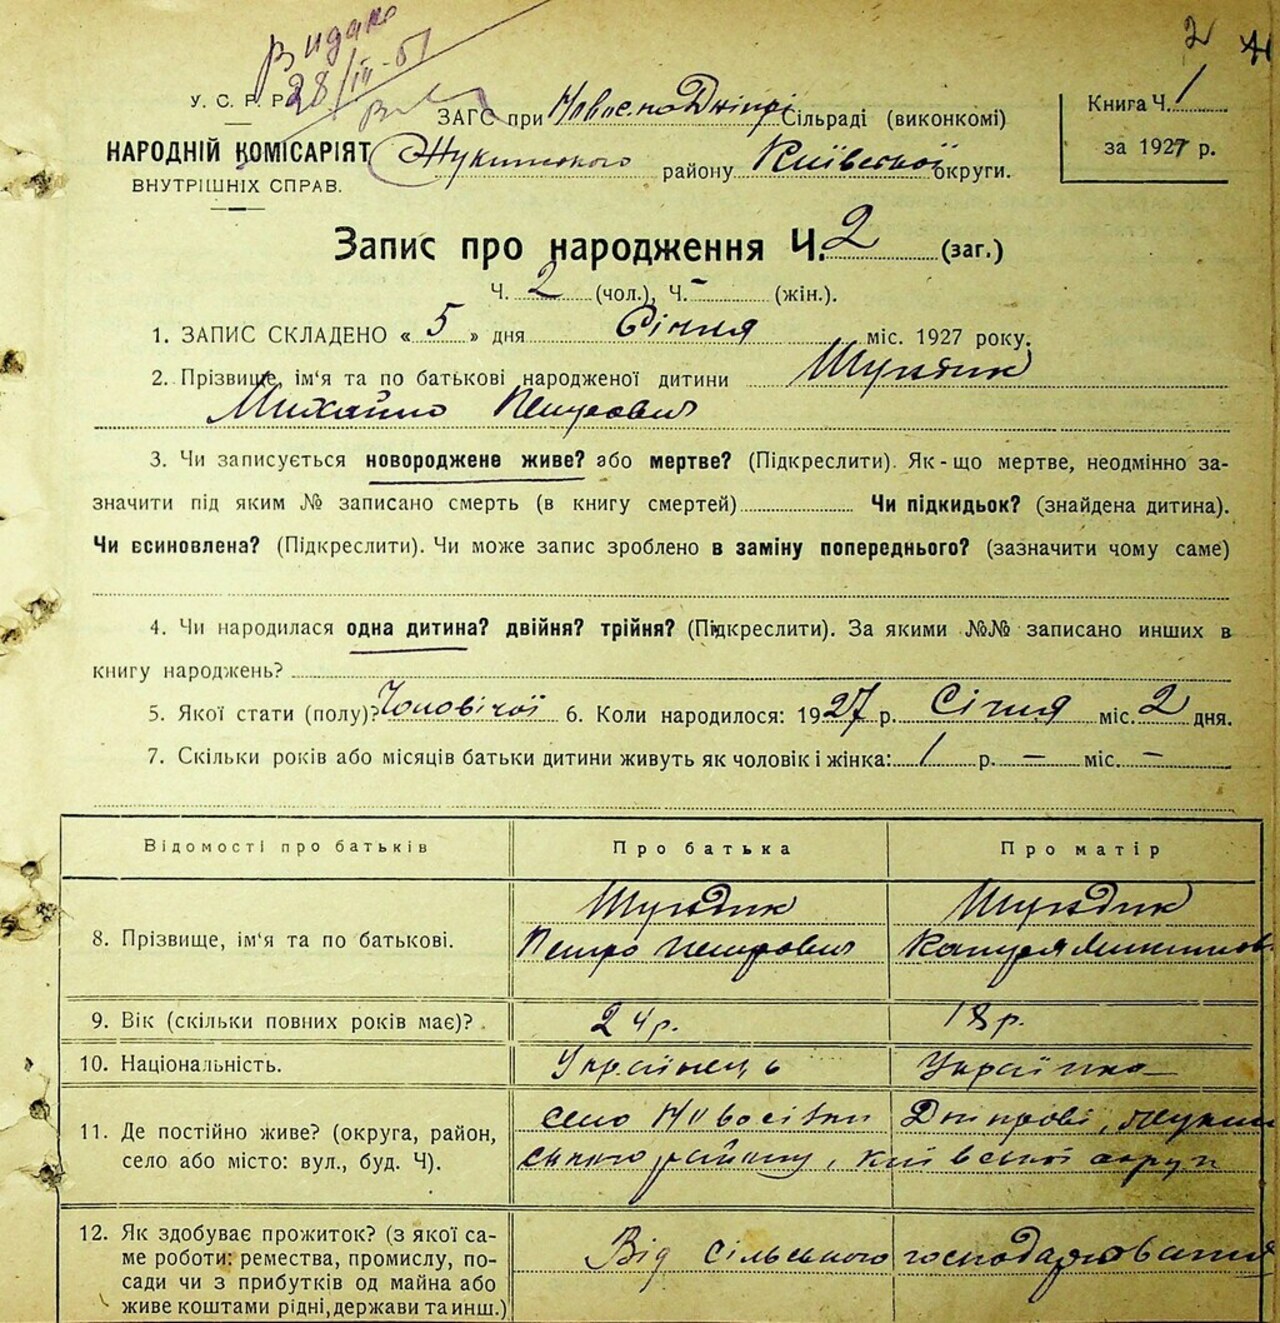 Видано
28/III-51
2
У. С. Р. Р.
НАРОДНІЙ КОМІСАРІЯТ
ВНУТРІШНІХ СПРАВ.
ЗАГС при Сільраді (виконкомі)
Жукинського району Київської округи.
Книга Ч. 1
за 1927 р.
Запис про народження Ч. 2 (заг.)
Ч. 2 (чол.), Ч. - (жін.).
1. ЗАПИС СКЛАДЕНО « 5 » дня Січня міс. 1927 року.
2. Прізвище, ім'я та по батькові народженої дитини
Михайло Петрович
3. Чи записується новороджене живе? або мертве? (Підкреслити). Як-що мертве, неодмінно за-
значити під яким № записано смерть (в книгу смертей) Чи підкидьок? (знайдена дитина).
Чи всиновлена? (Підкреслити). Чи може запис зроблено в заміну попереднього? (зазначити чому саме)
4. Чи народилася одна дитина? двійня? трійня? (Підкреслити). За якими №№ записано инших в
книгу народжень?
5. Якої стати (полу)? Чоловічої 6. Коли народилося: 1927 р. Січня міс. 2 дня.
7. Скільки років або місяців батьки дитини живуть як чоловік і жінка: 1 р. — міс. —
Відомості про батьків Про батька Про матір
8. Прізвище, ім'я та по батькові.
Петро Петрович
9. Вік (скільки повних років має)? 24 р. 18 р.
10. Національність. Українець Українка
11. Де постійно живе? (округа, район,
село або місто: вул., буд. Ч).
село Новосілки Дніпрові, Жукин
ського району, Київської округи
12. Як здобуває прожиток? (з якої са-
ме роботи: ремества, промислу, по-
сади чи з прибутків од майна або
живе коштами рідні, держави та инш.)
Від сільського господарювання